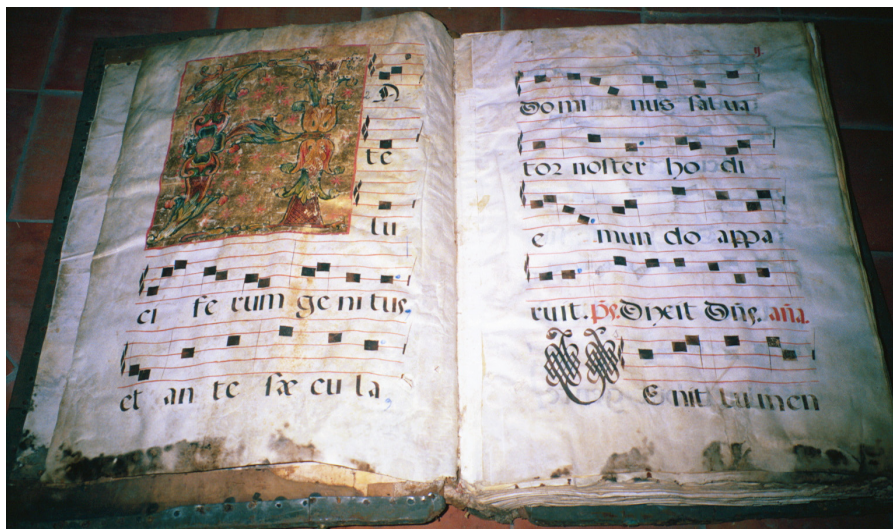 AN
te
lu
ci fe rum ge ni tus,
et an te sæ cu la,
Domi nus sal ua
tor noster ho di
e mun do appa
ruit. ps. Dixit Dñs. aña.
VE nit lu men